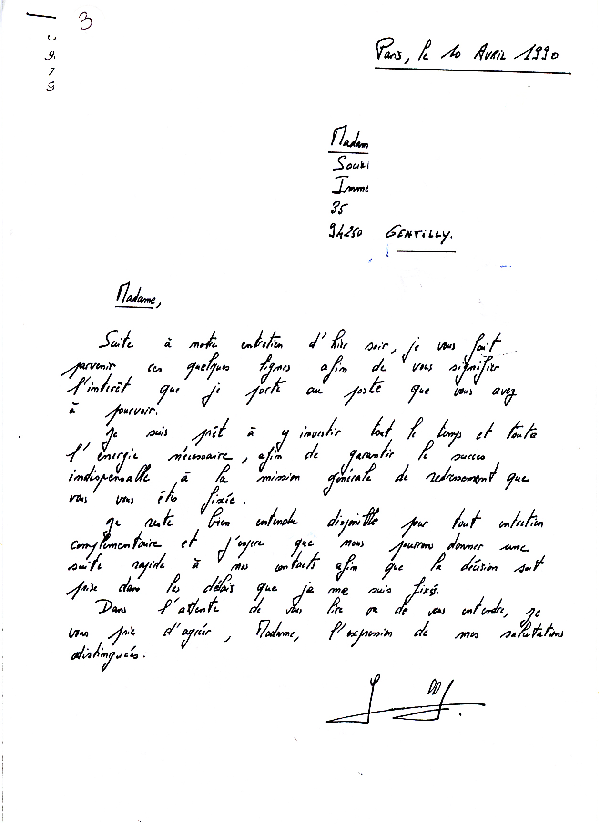 3
Paris, le 10 Avril 1990
Madam
Souri
Imm
35
94250 GENTILLY.
Madame,
Suite à notre entretien d'hier soir, je vous fait
parvenir ces quelques lignes afin de vous signifier
l'interêt que je porte au poste que vous avez
à pourvoir.
Je suis prêt à y investir tout le temps et toute
l'énergie nécessaire, afin de garantir le succes
indispensable à la mission générale de redressement que
vous vous êtes fixée.
Je reste bien entendu disponible pour tout entretien
complémentaire et j'espère que nous pourrons donner une
suite rapide à nos contacts afin que la décision soit
prise dans les délais que je me suis fixés.
Dans l'attente de vous lire ou de vous entendre, je
vous prie d'agréer, Madame, l'expression de mes salutations
distinguées.